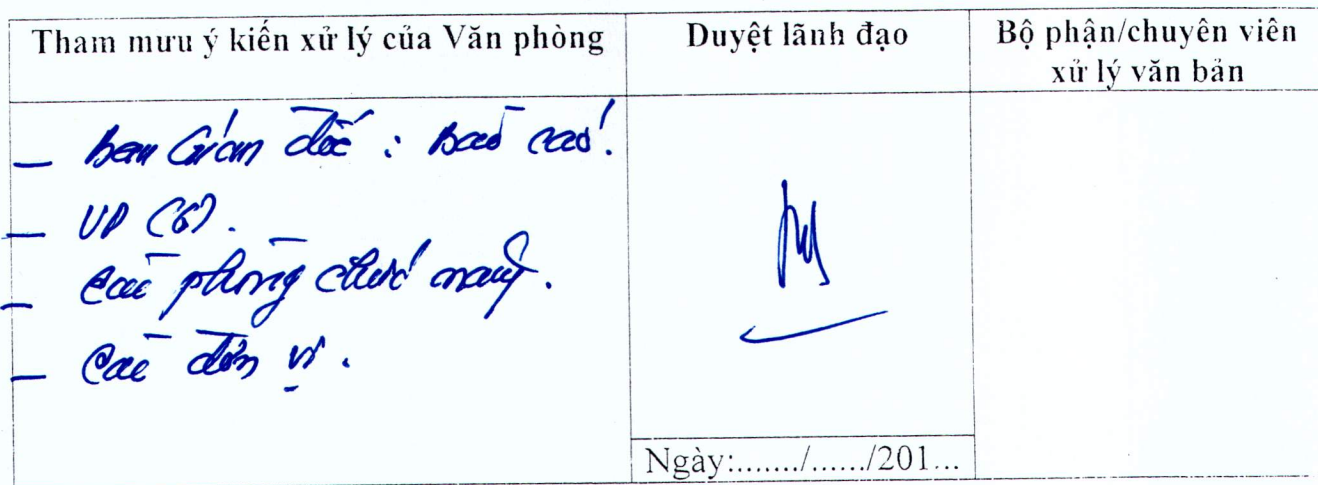 Tham mưu ý kiến xử lý của Văn phòng
Duyệt lãnh đạo
Bộ phận/chuyên viên
xử lý văn bản
- Ban Giám đốc : Báo cáo.
- VP (6).
- Các phòng chức năng.
- Các đơn vị.
Ngày:......./....../201...